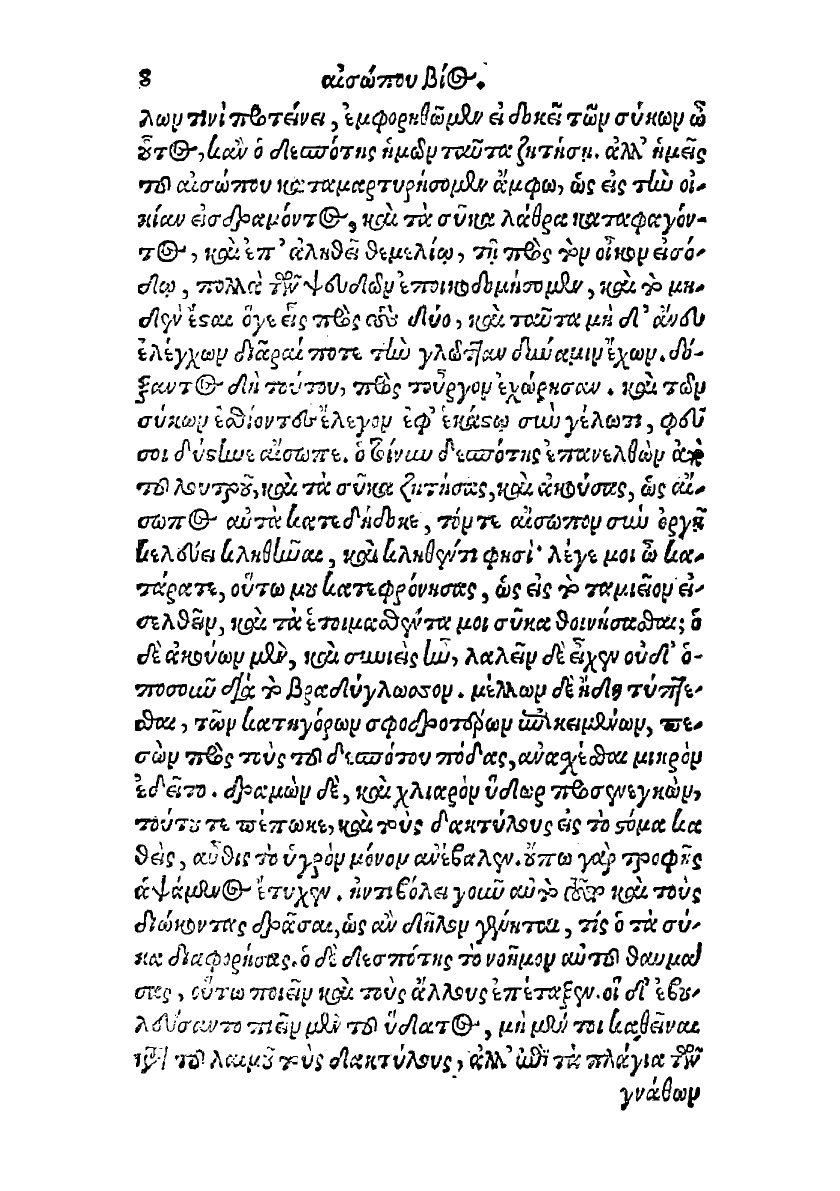 8 αἰσώπου βίος.
λων τινὶ προτείνει, ἐμφορηθῶμεν εἰ δοκεῖ τῶν σύκων ὦ
οὗτος, κἂν ὁ δεσπότης ἡμῶν ταῦτα ζητήσῃ. ἀλλ' ἡμεῖς
τοῦ αἰσώπου καταμαρτυρήσομεν ἄμφω, ὡς εἰς τὴν οἰ-
κίαν εἰσδραμόντος, καὶ τὰ σῦκα λάθρα καταφαγόν-
τος, καὶ ἐπ' ἀληθεῖ θεμελίῳ, τῇ πρὸς τὸν οἶκον εἰσό-
δῳ, πολλὰ τῶν ψευδῶν ἐποικοδομήσομεν, καὶ τὸ μη-
δὲν ἔσται ὅγε εἷς πρὸς τοὺς δύο, καὶ ταῦτα μὴ δ' ἄνευ
ἐλέγχων διᾶραί ποτε τὴν γλῶτταν δυνάμιν ἔχων. δό-
ξαντος δὴ τούτου, πρὸς τοὖργον ἐχώρησαν. καὶ τῶν
σύκων ἐσθίοντες ἔλεγον ἐφ' ἑκάστῳ σὺν γέλωτι, φεῦ
σοι δύστηνε αἴσωπε. ὁ τοίνυν δεσπότης ἐπανελθὼν ἀπὸ
τοῦ λουτροῦ, καὶ τὰ σῦκα ζητήσας, καὶ ἀκούσας, ὡς αἴ-
σωπος αὐτὰ κατεδήδοκε, τόν τε αἴσωπον σὺν ὀργῇ
κελεύει κληθῆναι, καὶ κληθέντι φησί· λέγε μοι ὦ κα-
τάρατε, οὕτω μου κατεφρόνησας, ὡς εἰς τὸ ταμιεῖον εἰ-
σελθεῖν, καὶ τὰ ἑτοιμασθέντα μοι σῦκα θοινήσασθαι; ὁ
δὲ ἀκούων μὲν, καὶ συνιεὶς ἦν, λαλεῖν δὲ εἶχεν οὐδ' ὁ-
ποσοῦν διὰ τὸ βραδύγλωσσον. μέλλων δὲ ἤδη τύπτε-
σθαι, τῶν κατηγόρων σφοδροτέρων ἐπικειμένων, πε-
σὼν πρὸς τοὺς τοῦ δεσπότου πόδας, ἀνασχέσθαι μικρὸν
ἐδεῖτο. δραμὼν δὲ, καὶ χλιαρὸν ὕδωρ προσενεγκὼν,
τοῦτό τε πέπωκε, καὶ τοὺς δακτύλους εἰς τὸ στόμα κα
θεὶς, αὖθις τὸ ὑγρὸν μόνον ἀνέβαλεν. οὔπω γὰρ τροφῆς
ἁψάμενος ἔτυχεν. ἠντιβόλει γοῦν αὐτὸ τοῦτο καὶ τοὺς
διώκοντας δρᾶσαι, ὡς ἂν δῆλον γένηται, τίς ὁ τὰ σύ-
κα διαφορήσας. ὁ δὲ δεσπότης τὸ νοῆμον αὐτοῦ θαυμά
σας, οὕτω ποιεῖν καὶ τοὺς ἄλλους ἐπέταξεν. οἱ δ' ἐβου-
λεύσαντο πιεῖν μὲν τοῦ ὕδατος, μὴ μέν τοι καθεῖναι
τοῦ λαιμοῦ τοὺς δακτύλους, ἀλλ' ἐπὶ τὰ πλάγια τῶν
γνάθων